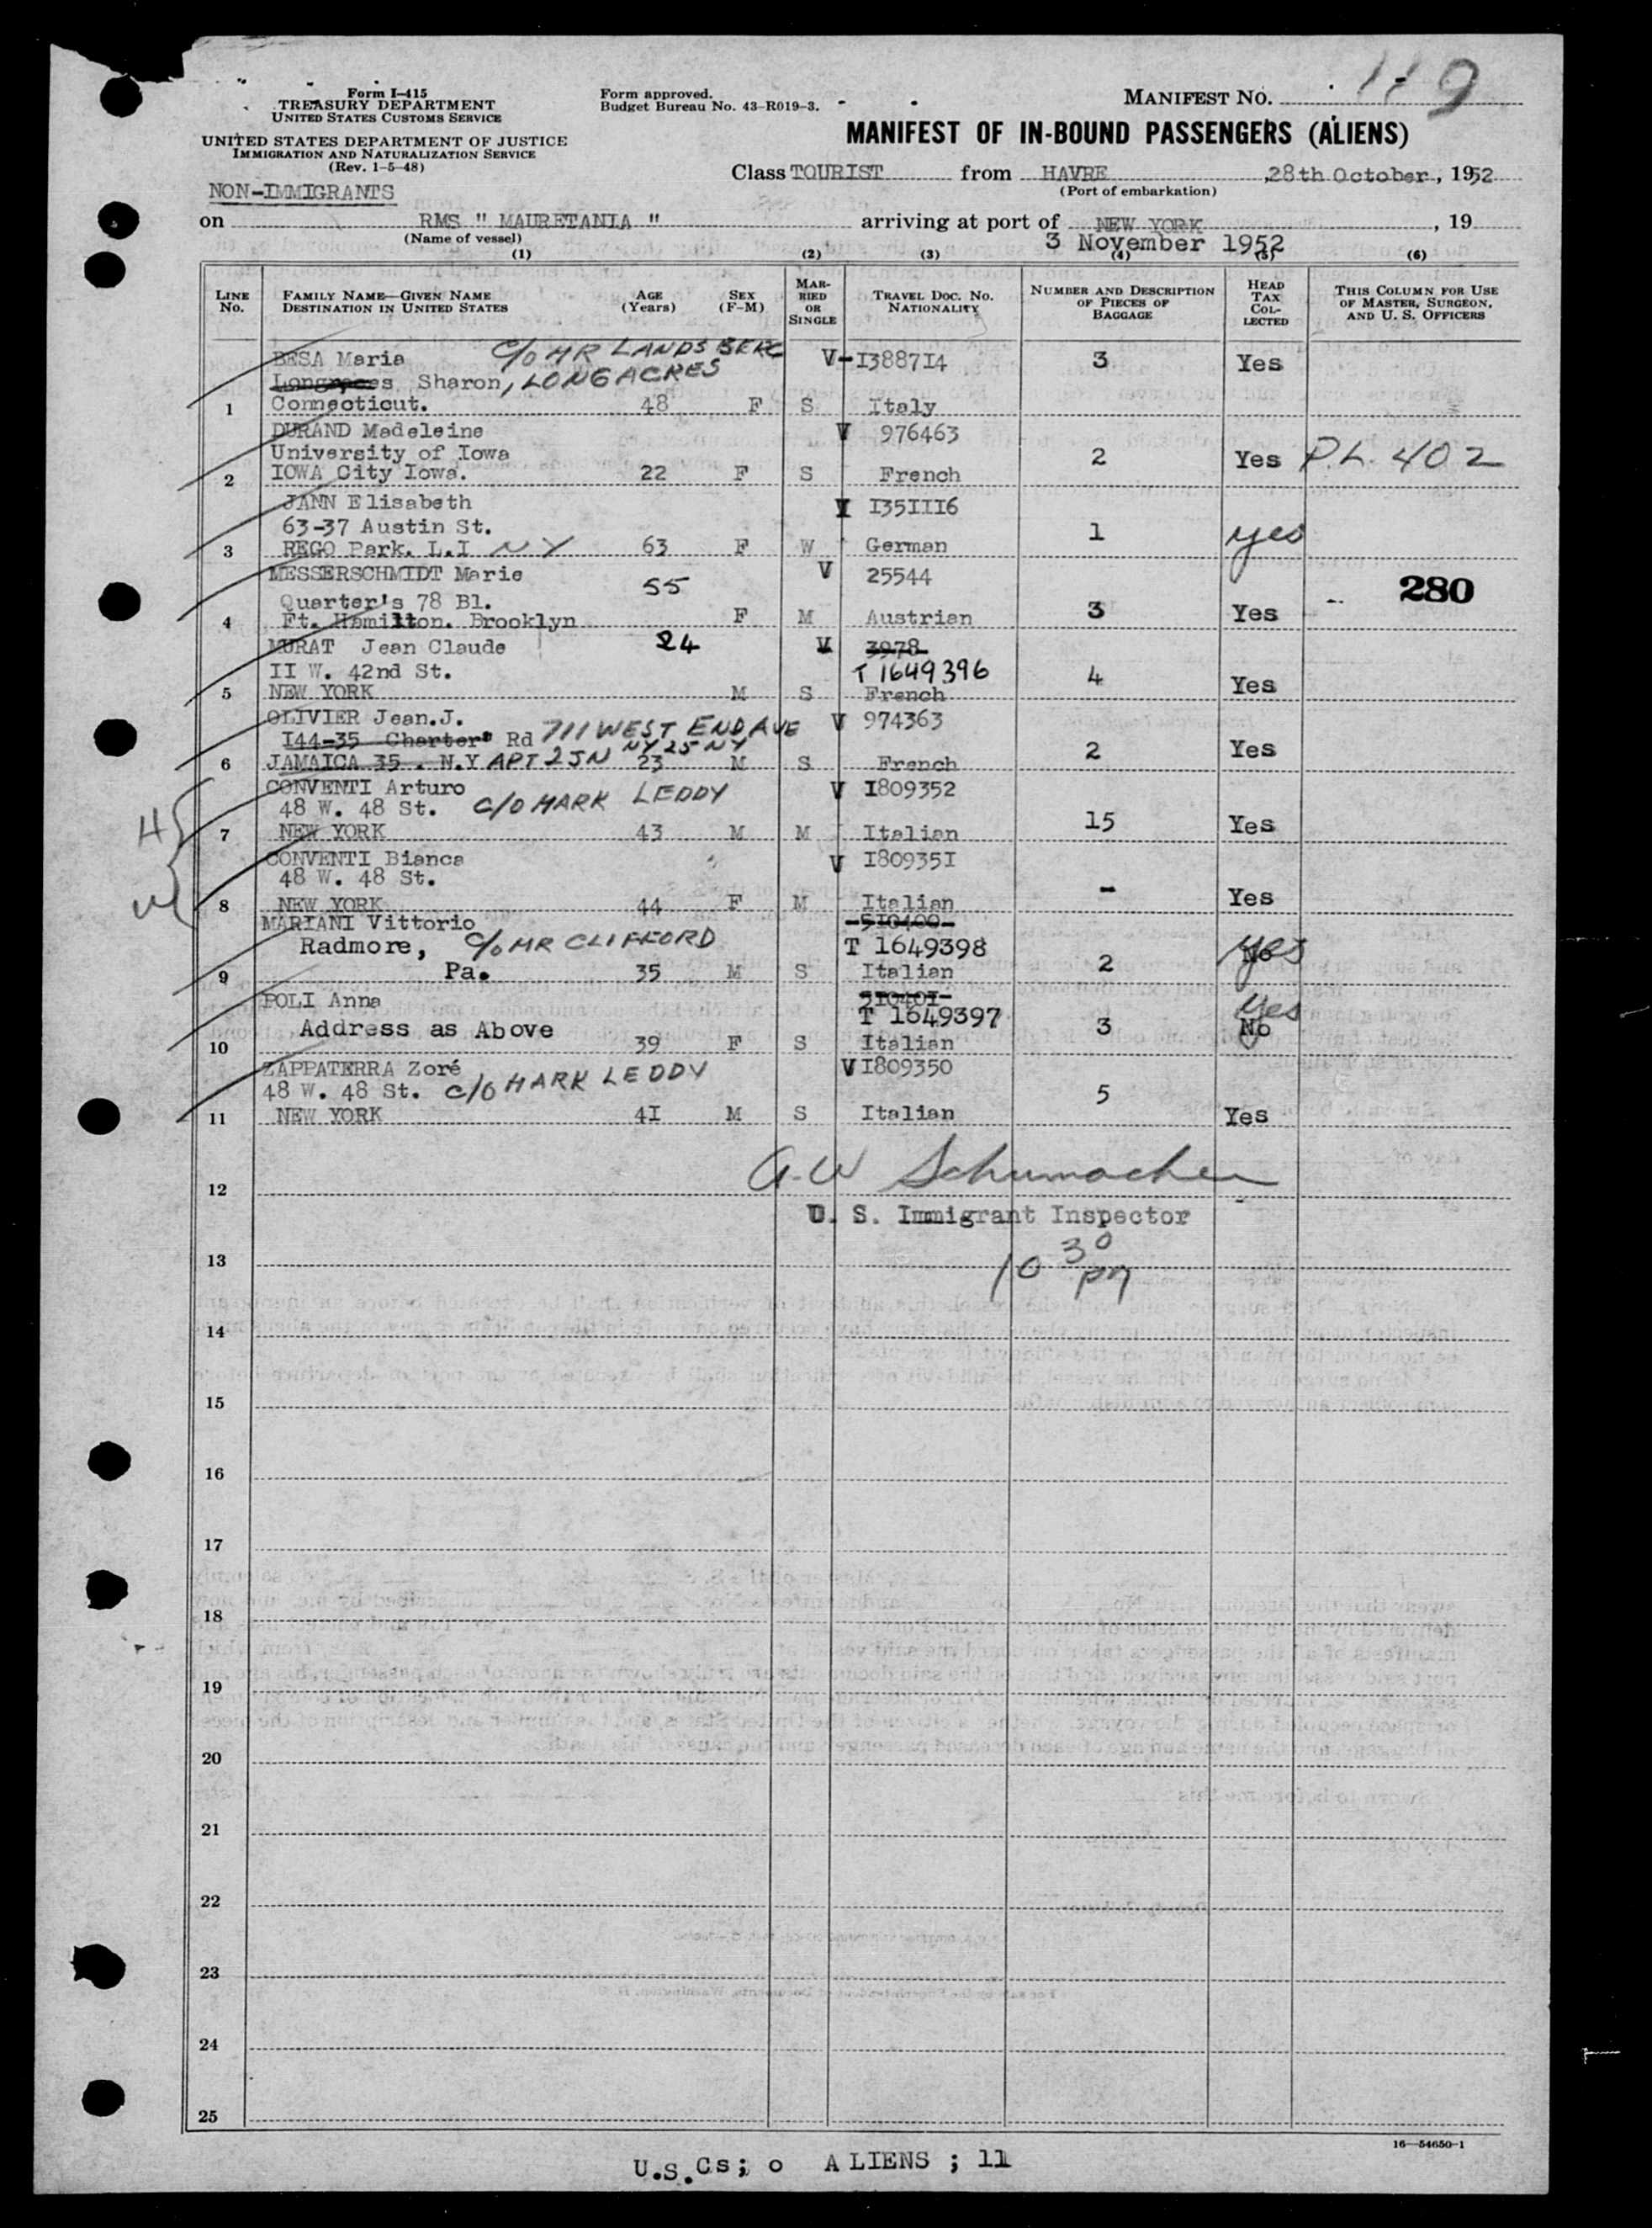 119
Form I-415
TREASURY DEPARTMENT
UNITED STATES CUSTOMS SERVICE
UNITED STATES DEPARTMENT OF JUSTICE
IMMIGRATION AND NATURALIZATION SERVICE
(Rev. 1-5-48)
Form approved.
Budget Bureau No. 43-R019-3.
MANIFEST NO.
MANIFEST OF IN-BOUND PASSENGERS (ALIENS)
Class TOURIST from HAVRE, 28th October, 1952
(Port of embarkation)
NON-IMMIGRANTS
on RMS " MAURETANIA " arriving at port of NEW YORK, 19
(Name of vessel)
3 November 1952
(1) (2) (3) (4) (5) (6)
LINE No.
FAMILY NAME—GIVEN NAME
DESTINATION IN UNITED STATES
AGE (Years)
SEX (F-M)
MARRIED OR SINGLE
TRAVEL DOC. NO. NATIONALITY
NUMBER AND DESCRIPTION OF PIECES OF BAGGAGE
HEAD TAX COLLECTED
THIS COLUMN FOR USE OF MASTER, SURGEON, AND U. S. OFFICERS
BESA Maria C/O MR LANDSBERG V-I3887I4 3 Yes
Longacres Sharon, LONGACRES
1 Connecticut. 48 F S Italy
DURAND Madeleine V 976463
University of Iowa 2 Yes P.L. 402
2 IOWA City Iowa. 22 F S French
JANN Elisabeth V I35III6
63-37 Austin St. 1 yes
3 REGO Park. L.I NY 63 F W German
MESSERSCHMIDT Marie 55 V 25544 280
Quarter's 78 Bl. 3 Yes
4 Ft. Hamilton. Brooklyn F M Austrian
MURAT Jean Claude 24 V 3978
II W. 42nd St. T 1649396 4 Yes
5 NEW YORK M S French
OLIVIER Jean.J. V 974363
I44-35 Charter Rd 711 WEST END AVE 2 Yes
NY 25 NY
6 JAMAICA 35 . N.Y APT 2JN 23 M S French
CONVENTI Arturo V I809352
48 W. 48 St. C/O MARK LEDDY 15 Yes
H
7 NEW YORK 43 M M Italian
CONVENTI Bianca V I80935I
48 W. 48 St. - Yes
W
8 NEW YORK 44 F M Italian
MARIANI Vittorio 5I0400
Radmore, C/O MR CLIFFORD T 1649398 2 No yes
9 Pa. 35 M S Italian
POLI Anna 5I040I yes
Address as Above T 1649397 3 No
10 39 F S Italian
ZAPPATERRA Zoré V I809350
48 W. 48 St. C/O MARK LEDDY 5
11 NEW YORK 4I M S Italian Yes
A.W Schumacher
12
U. S. Immigrant Inspector
13
10 30 pm
14
15
16
17
18
19
20
21
22
23
24
25
16—54650-1
U.S.Cs; o ALIENS ; 11